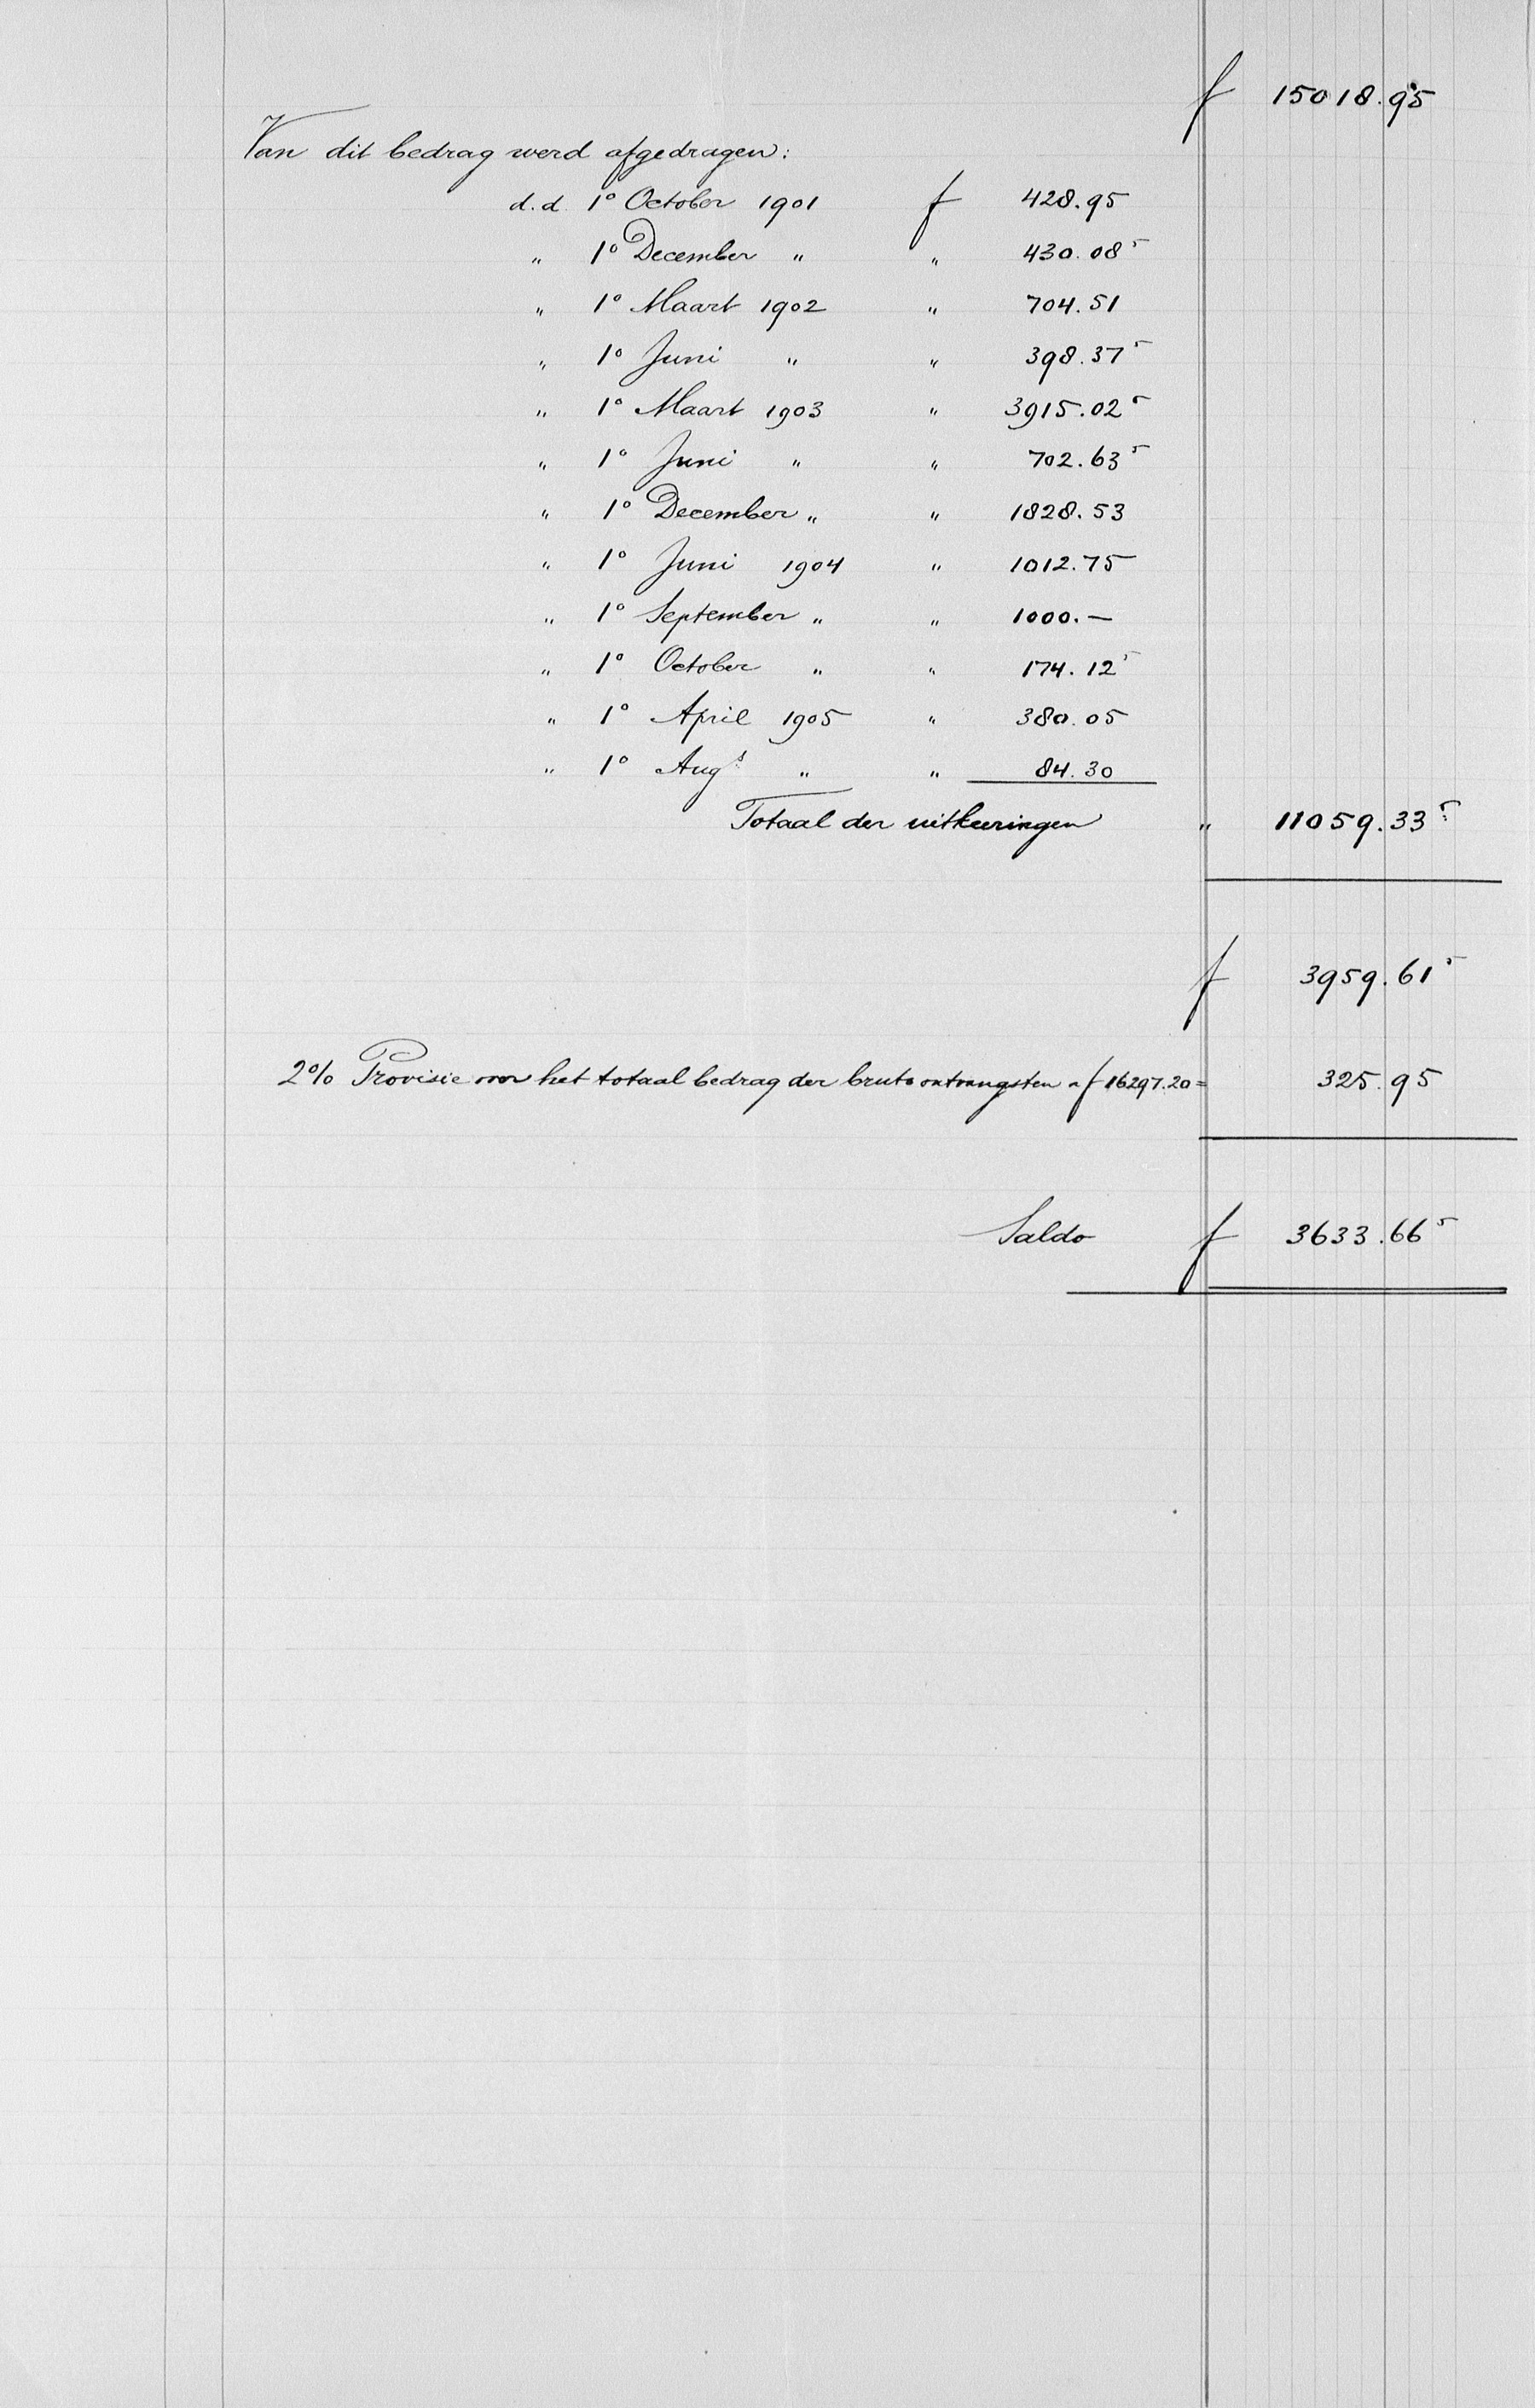 f 15018.95
Van dit bedrag werd afgedragen:
d.d. 1° October 1901 f 428.95
" 1° December " " 430.08⁵
" 1° Maart 1902 " 704.51
" 1° Juni " " 398.37⁵
" 1° Maart 1903 " 3915.02⁵
" 1° Juni " " 702.63⁵
" 1° December " " 1828.53
" 1° Juni 1904 " 1012.75
" 1° September " " 1000.—
" 1° October " " 174.12⁵
" 1° April 1905 " 380.05
" 1° Augs " " 84.30
Totaal der uitkeeringen " 11059.33⁵
f 3959.61⁵
2% Provisie over het totaal bedrag der bruto ontvangsten a f 16297.20 = 325.95
Saldo f 3633.66⁵